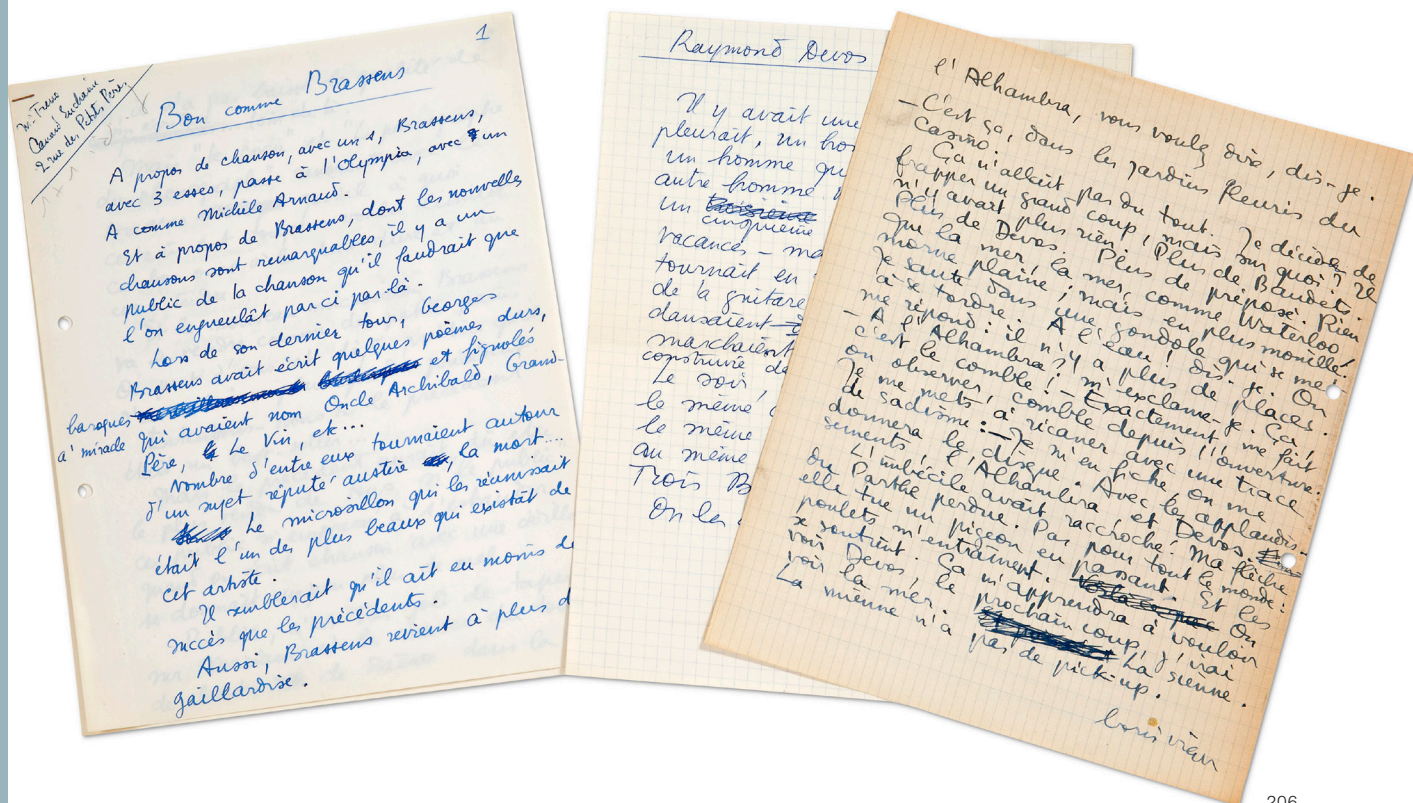 1
M. Treno
Canard Enchaîné
2 rue des Petits Pères
Bon comme Brassens
A propos de chanson, avec un s, Brassens,
avec 3 esses, passe à l'Olympia, avec un
A comme Michèle Arnaud.
Et à propos de Brassens, dont les nouvelles
chansons sont remarquables, il y a un
public de la chanson qu'il faudrait que
l'on engueulât par ci par-là.
Lors de son dernier tour, Georges
Brassens avait écrit quelques poèmes durs,
baroques et fignolés
a' miracle qui avaient nom Oncle Archibald, Grand-
Père, Le Vin, etc...
Nombre d'entre eux tournaient autour
d'un sujet réputé austère, la mort....
Le microsillon qui les réunissait
était l'un des plus beaux qui existât de
cet artiste.
Il semblerait qu'il ait eu moins de
succès que les précédents.
Aussi, Brassens revient à plus d
gaillardise.
Raymond Devos
Il y avait une
pleurait, un ho
un homme qu
autre homme
un
cinquième
vacances - ma
tournait en
de la guitare
dansaient
marchaient
construire de
Le soir
le même
le même
au même
Trois B
On les
l'Alhambra, vous voulez dire, dis-je.
- C'est ça, dans les jardins fleuris du
Casino.
Ça n'allait pas du tout. Je décidai de
frapper un grand coup, mais sur quoi? Il
n'y avait plus rien. Plus de Baudets.
Plus de Devos. Plus de préposé. Rien
que la mer, la mer, comme Waterloo,
morne plaine; mais en plus mouillé!
Je saute dans une gondole qui se met
à se tordre. A l'eau! dis-je. On
me répond: il n'y a plus de places.
- A l'Alhambra? m'exclamé-je. Ça,
c'est le comble! - Exactement, me fait
on observer, comble depuis l'ouverture.
Je me mets à ricaner avec une trace
de sadisme: - Je m'en fiche on me
donnera le disque. Avec les applaudis-
sements, l'Alhambra, et Devos.
L'imbécile avait raccroché! Ma flèche
du Parthe perdue. Pas pour tout le monde:
elle tue un pigeon en passant. Et les
poulets m'entraînent. On
se soutient. Ça m'apprendra à vouloir
voir Devos, le prochain coup, j'irai
voir la mer. La sienne.
La mienne n'a pas de pick-up.
boris vian
206